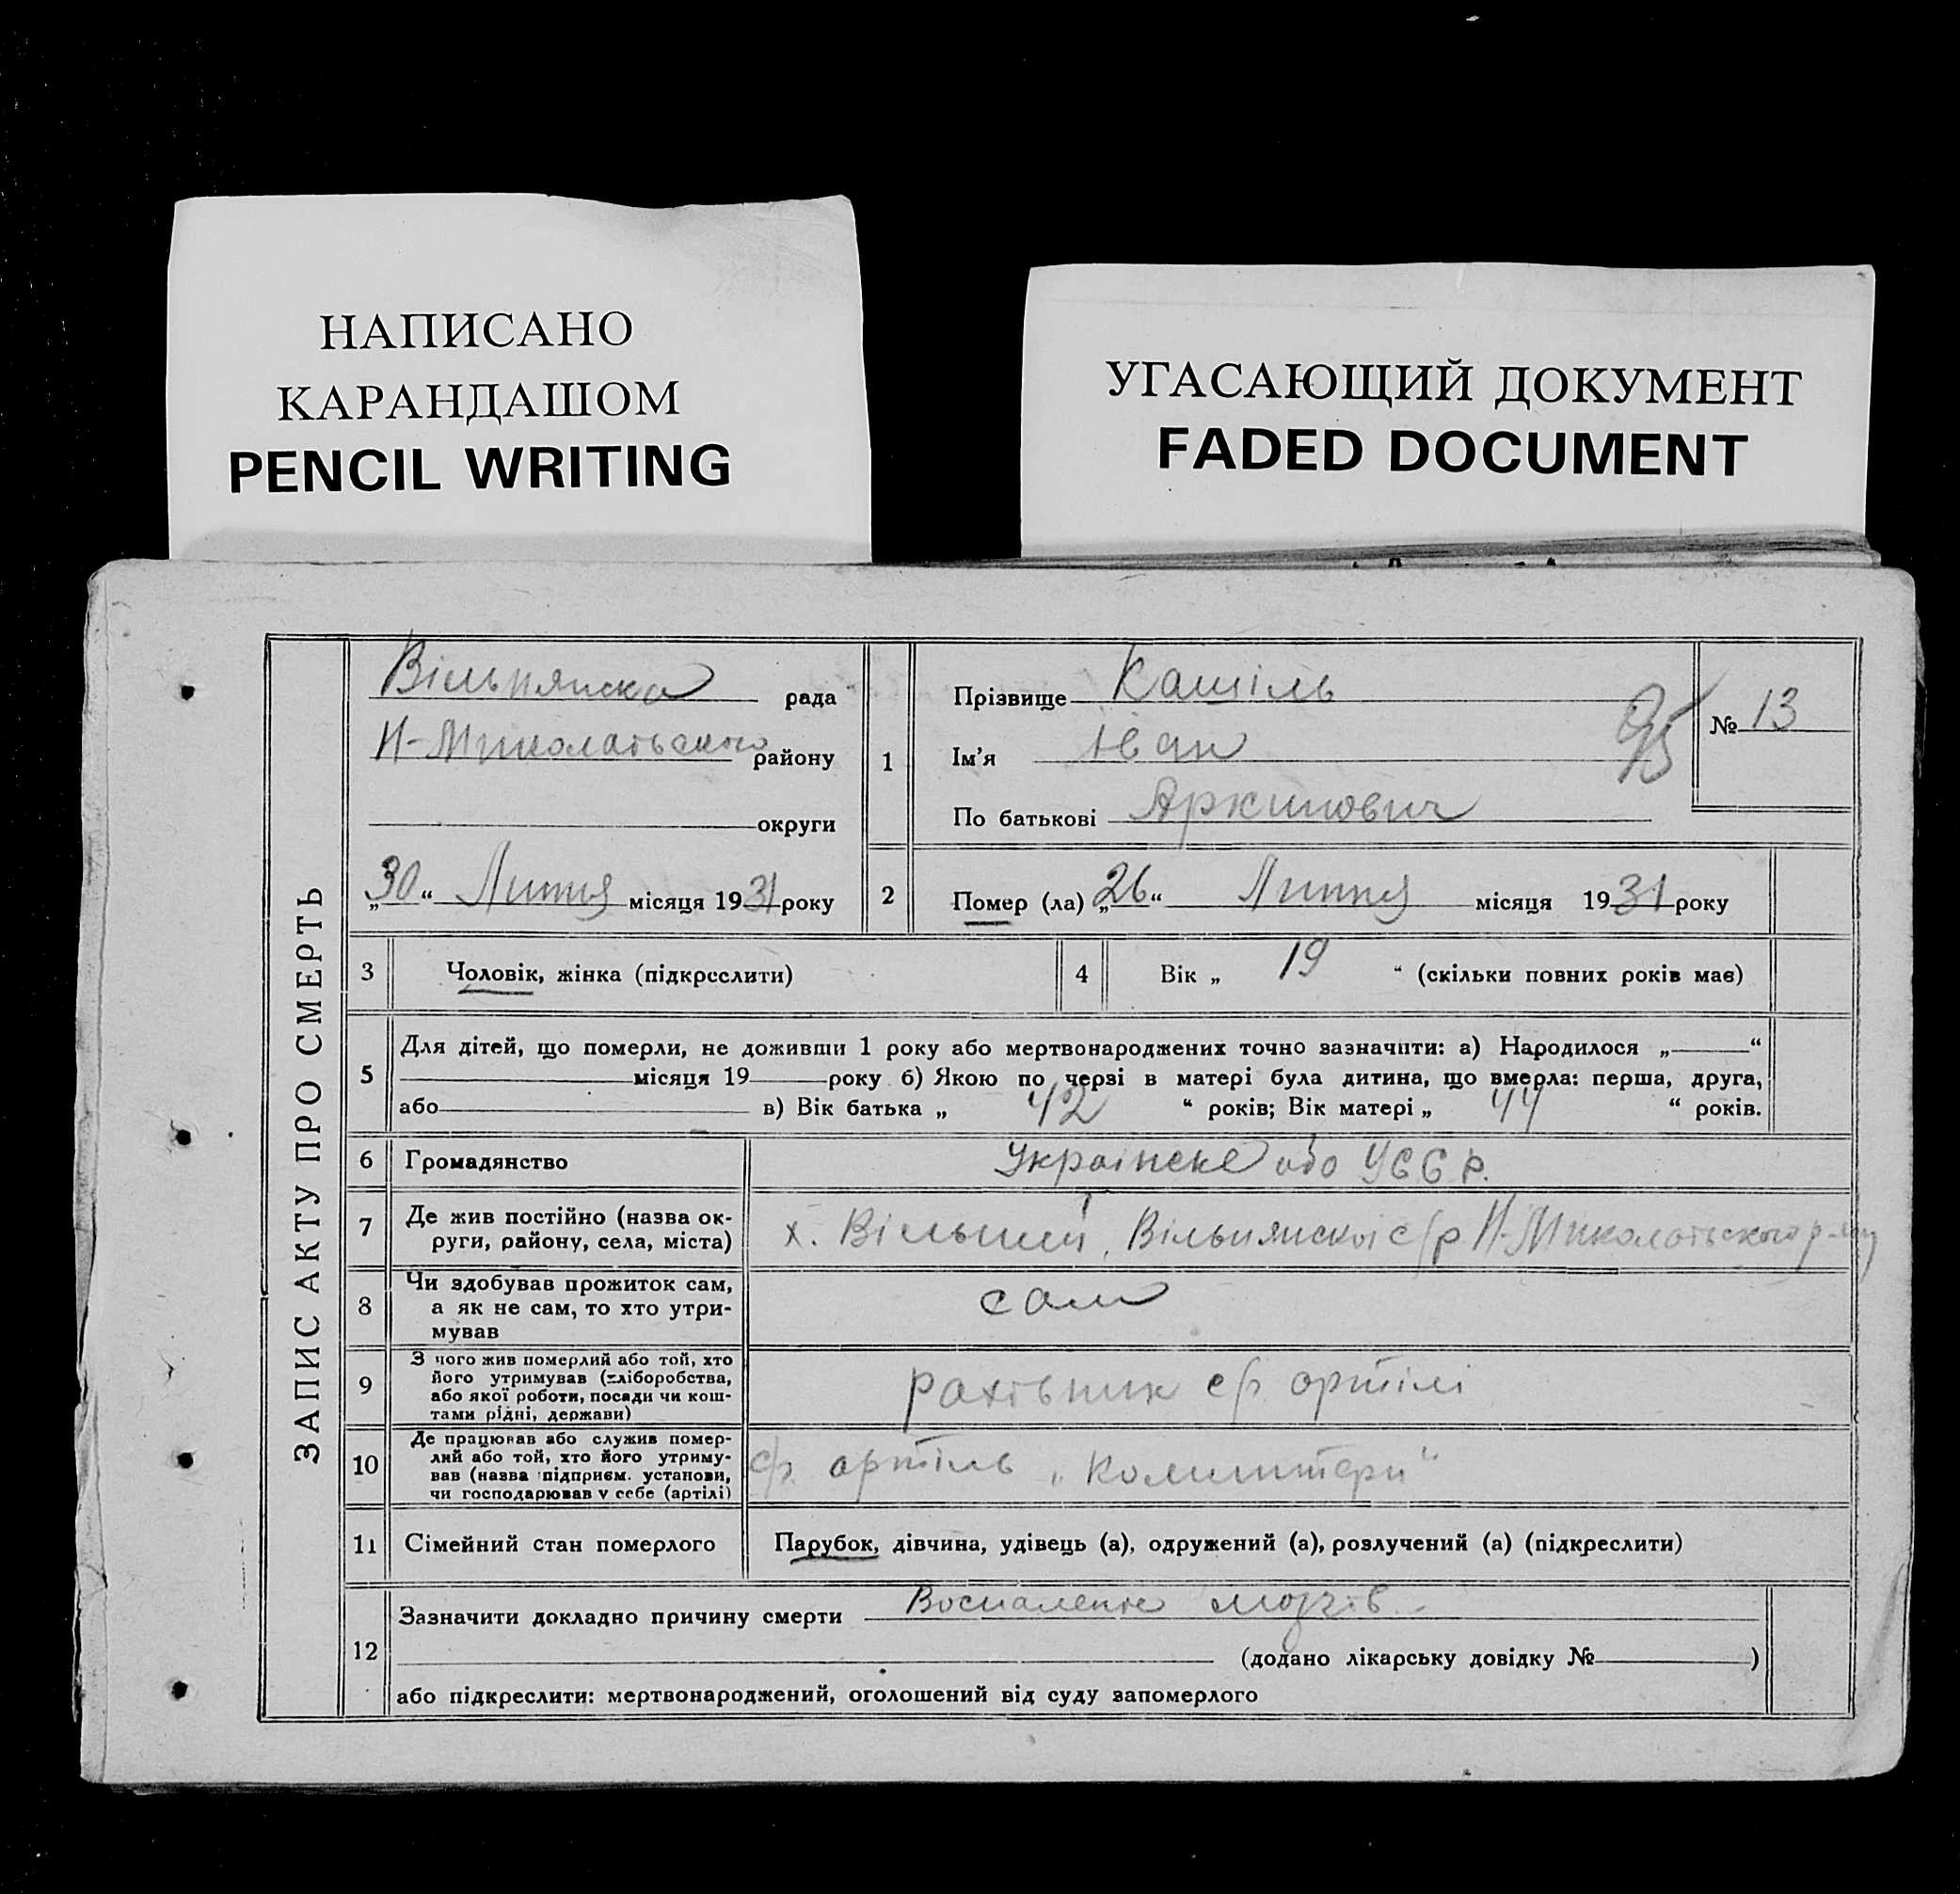 НАПИСАНО
КАРАНДАШОМ
PENCIL WRITING
УГАСАЮЩИЙ ДОКУМЕНТ
FADED DOCUMENT
ЗАПИС АКТУ ПРО СМЕРТЬ
Вільнянска рада
Н-Миколаівського району
округи
„30“ Липня місяця 1931 року
1
Прізвище Кашіль
Ім'я Іван
По батькові Архипович
95
№ 13
2 Помер (ла) „26“ Липня місяця 1931 року
3 Чоловік, жінка (підкреслити)
4 Вік „ 19 “ (скільки повних років має)
5 Для дітей, що померли, не доживши 1 року або мертвонароджених точно зазначити: а) Народилося „ “
місяця 19 року б) Якою по черзі в матері була дитина, що вмерла: перша, друга,
або в) Вік батька „ 42 “ років; Вік матері „ 44 “ років.
6 Громадянство Украінске або УССР.
7 Де жив постійно (назва ок-
руги, району, села, міста)
х. Вільний, Вільнянскоі с/р Н-Миколаівського р-ну
8 Чи здобував прожиток сам,
а як не сам, то хто утри-
мував
сам
9 З чого жив померлий або той, хто
його утримував (хліборобства,
або якої роботи, посади чи кош-
тами рідні, держави)
рахівник с/г. артілі
10 Де працював або служив помер-
лий або той, хто його утриму-
вав (назва підприєм. установи,
чи господарював у себе (артілі)
с/г. артіль „Комінтерн“
11 Сімейний стан померлого Парубок, дівчина, удівець (а), одружений (а), розлучений (а) (підкреслити)
12 Зазначити докладно причину смерти Воспаленіє мозгів
(додано лікарську довідку № )
або підкреслити: мертвонароджений, оголошений від суду запомерлого